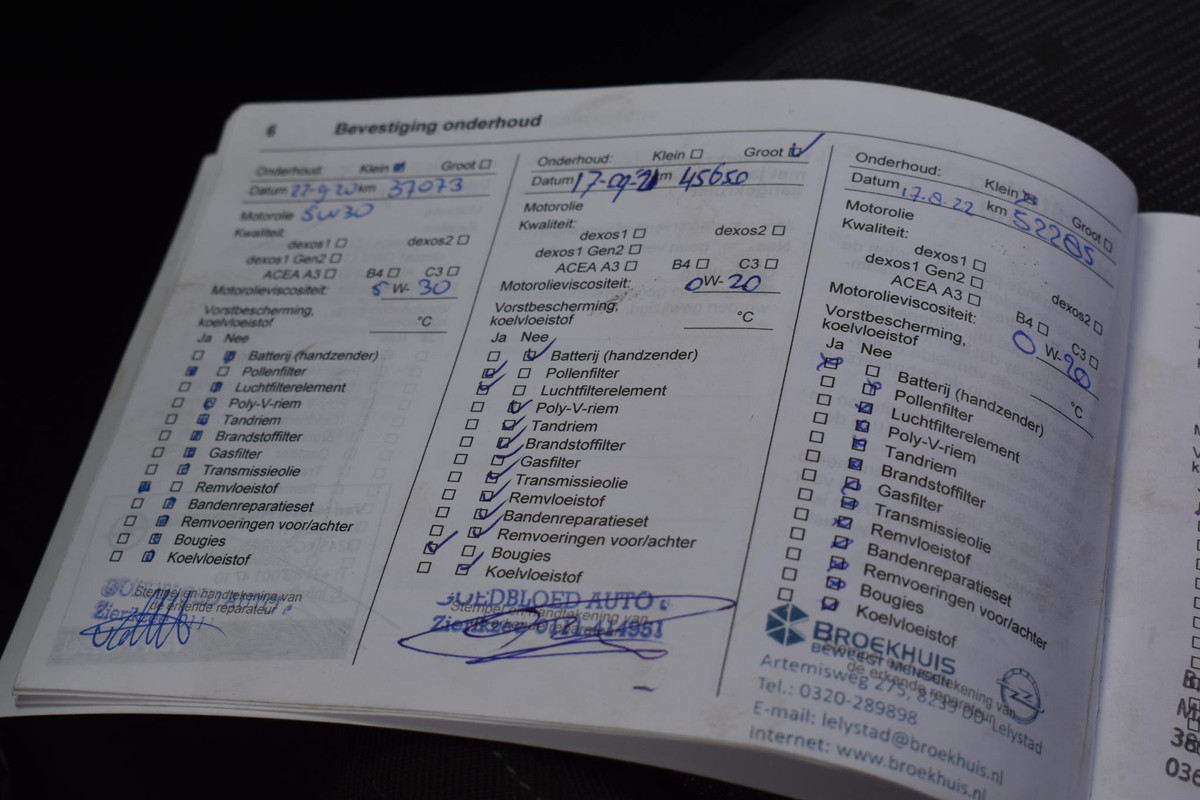 6 Bevestiging onderhoud
Onderhoud: Klein Groot
Datum 22-9 20 km 37073
Motorolie 5W30
Kwaliteit:
dexos1 dexos2
dexos1 Gen2
ACEA A3 B4 C3
Motorolieviscositeit: 5 W- 30
Vorstbescherming,
koelvloeistof °C
Ja Nee
Batterij (handzender)
Pollenfilter
Luchtfilterelement
Poly-V-riem
Tandriem
Brandstoffilter
Gasfilter
Transmissieolie
Remvloeistof
Bandenreparatieset
Remvoeringen voor/achter
Bougies
Koelvloeistof
Stempel en handtekening van
de erkende reparateur
Onderhoud: Klein Groot
Datum 17-09-21 km 45650
Motorolie
Kwaliteit:
dexos1 dexos2
dexos1 Gen2
ACEA A3 B4 C3
Motorolieviscositeit: 0 W- 20
Vorstbescherming,
koelvloeistof °C
Ja Nee
Batterij (handzender)
Pollenfilter
Luchtfilterelement
Poly-V-riem
Tandriem
Brandstoffilter
Gasfilter
Transmissieolie
Remvloeistof
Bandenreparatieset
Remvoeringen voor/achter
Bougies
Koelvloeistof
GOEDBLOED AUTO
Stempel en handtekening van
de erkende reparateur
Zierikzee 414951
Onderhoud: Klein Groot
Datum 17.8.22 km 52285
Motorolie
Kwaliteit:
dexos1 dexos2
dexos1 Gen2
ACEA A3 B4 C3
Motorolieviscositeit: 0 W- 20
Vorstbescherming,
koelvloeistof °C
Ja Nee
Batterij (handzender)
Pollenfilter
Luchtfilterelement
Poly-V-riem
Tandriem
Brandstoffilter
Gasfilter
Transmissieolie
Remvloeistof
Bandenreparatieset
Remvoeringen voor/achter
Bougies
Koelvloeistof
BROEKHUIS
BEWEEGT MENSEN
Stempel en handtekening van
de erkende reparateur
Artemisweg 275, 8239 DD Lelystad
Tel.: 0320-289898
E-mail: lelystad@broekhuis.nl
Internet: www.broekhuis.nl